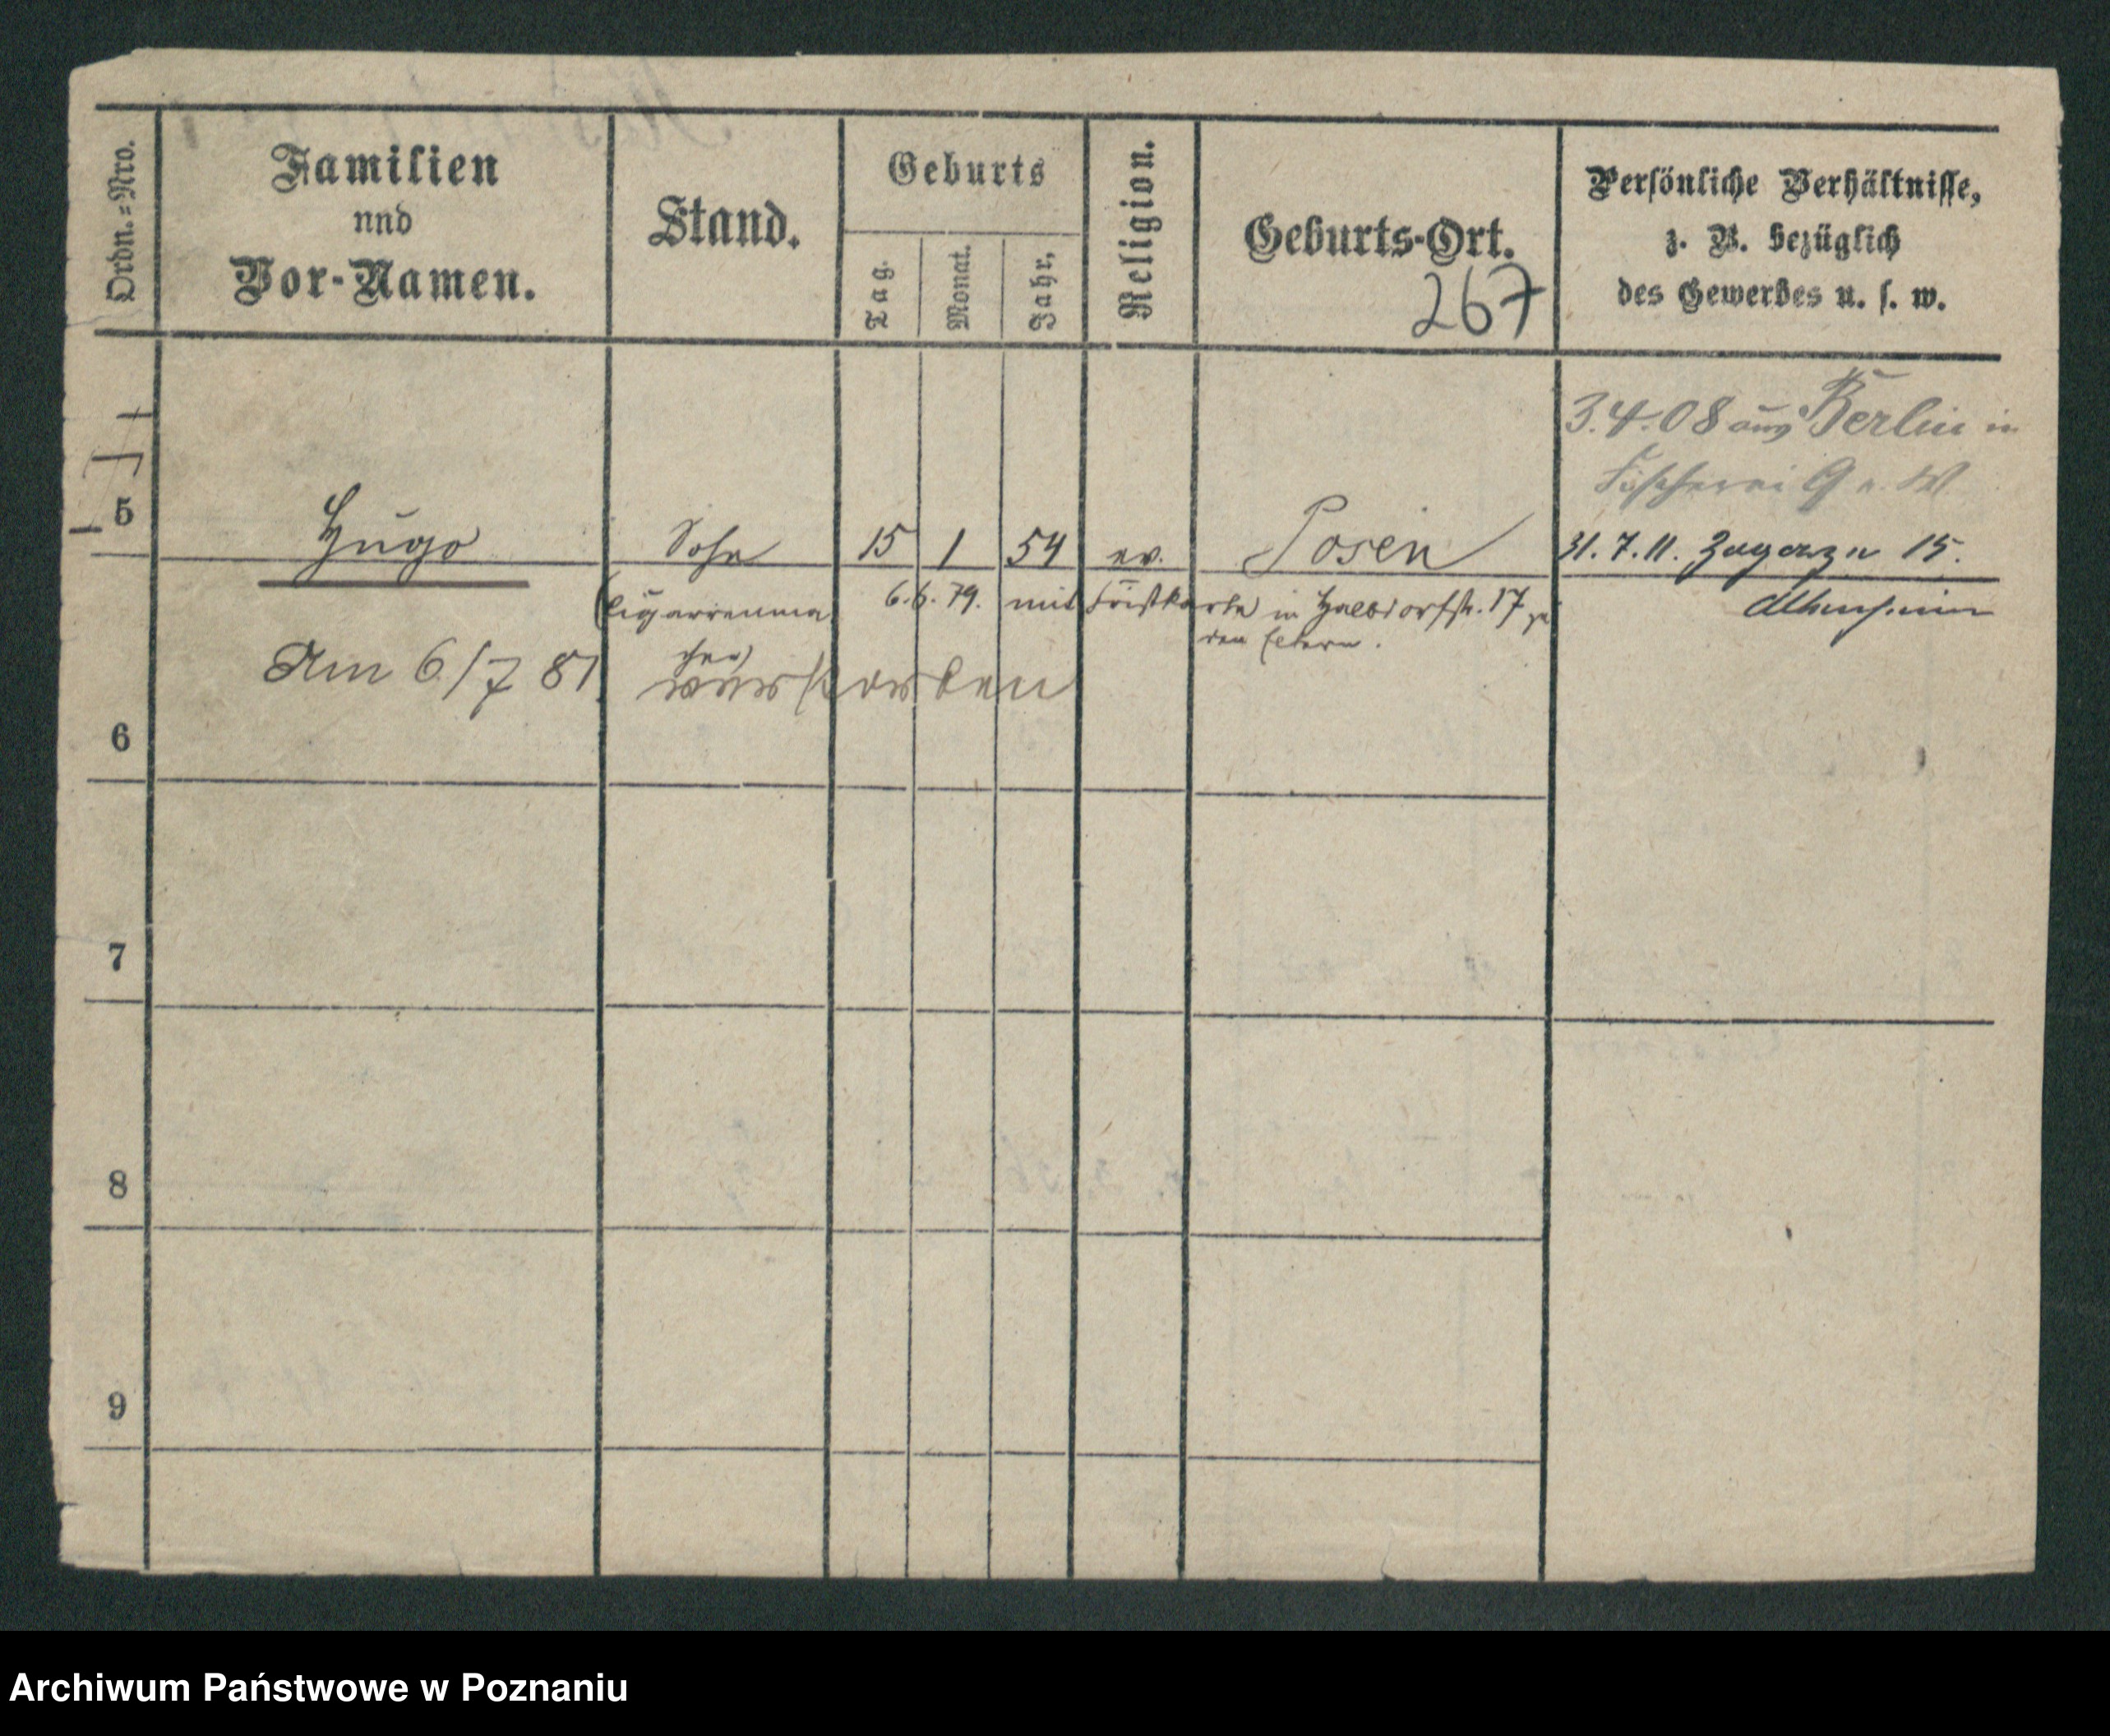 Ordn.=Nro.
Familien
nnd
Vor-Namen.
Stand.
Geburts
Tag.
Monat.
Jahr.
Religion.
Geburts-Ort.
267
Persönliche Verhältnisse,
z. B. bezüglich
des Gewerbes u. s. w.
3.4.08 aus Berlin in
Fischerei 9 b. W
5 Hugo Sohn 15 1 54 ev. Posen 31.7.11. 15.
Cigarrenma 6.6.79. mit in Halbdorfstr. 17 zu
chen
den Eltern.
Am 6/7 81 verstorben
6
7
8
9
Archiwum Państwowe w Poznaniu